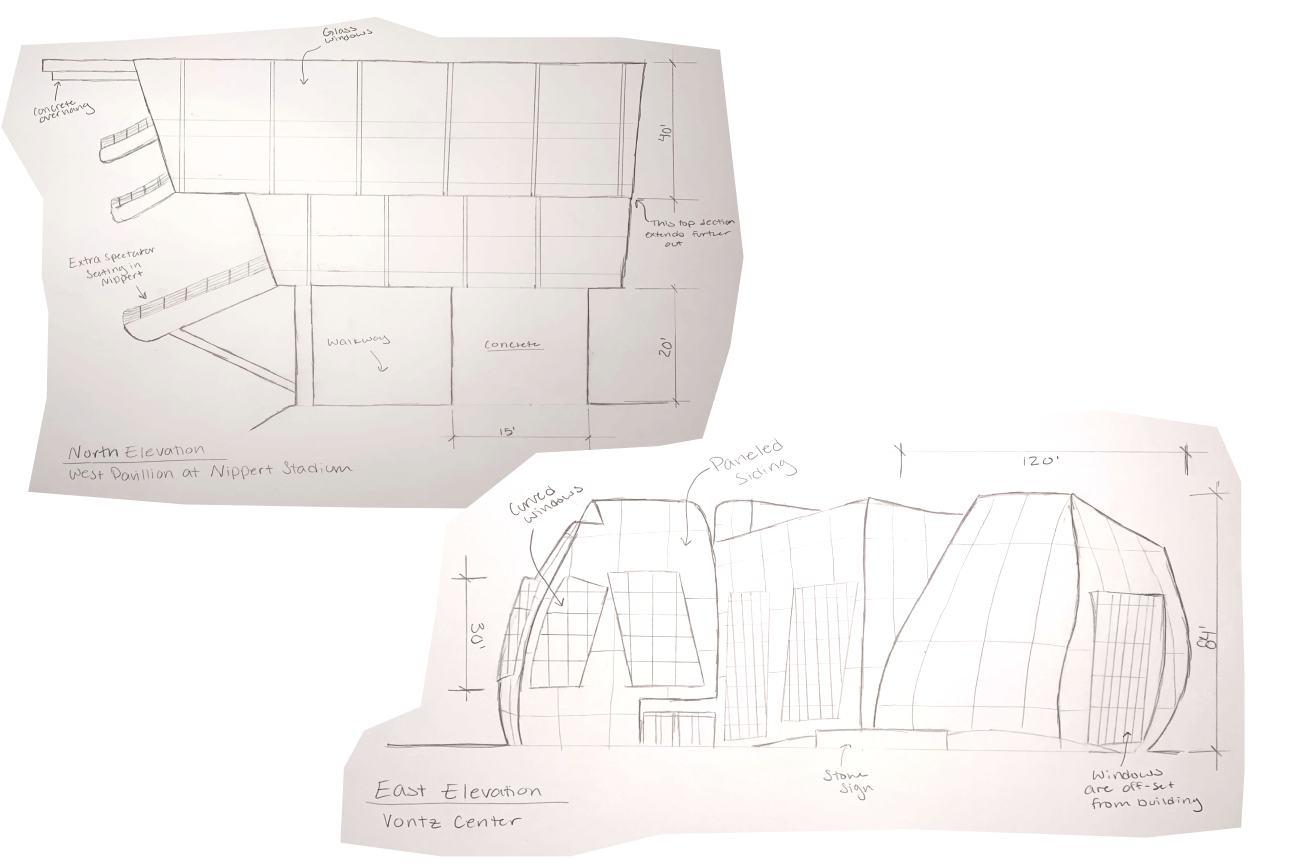 Glass
windows
concrete
overhang
40'
This top section
extends further
out
Extra Spectator
Seating in
Nippert
Walkway
Concrete
20'
15'
North Elevation
West Pavillion at Nippert Stadium
Paneled
Siding
120'
Curved
windows
30'
84'
Stone
Sign
Windows
are off-set
from building
East Elevation
Vontz Center